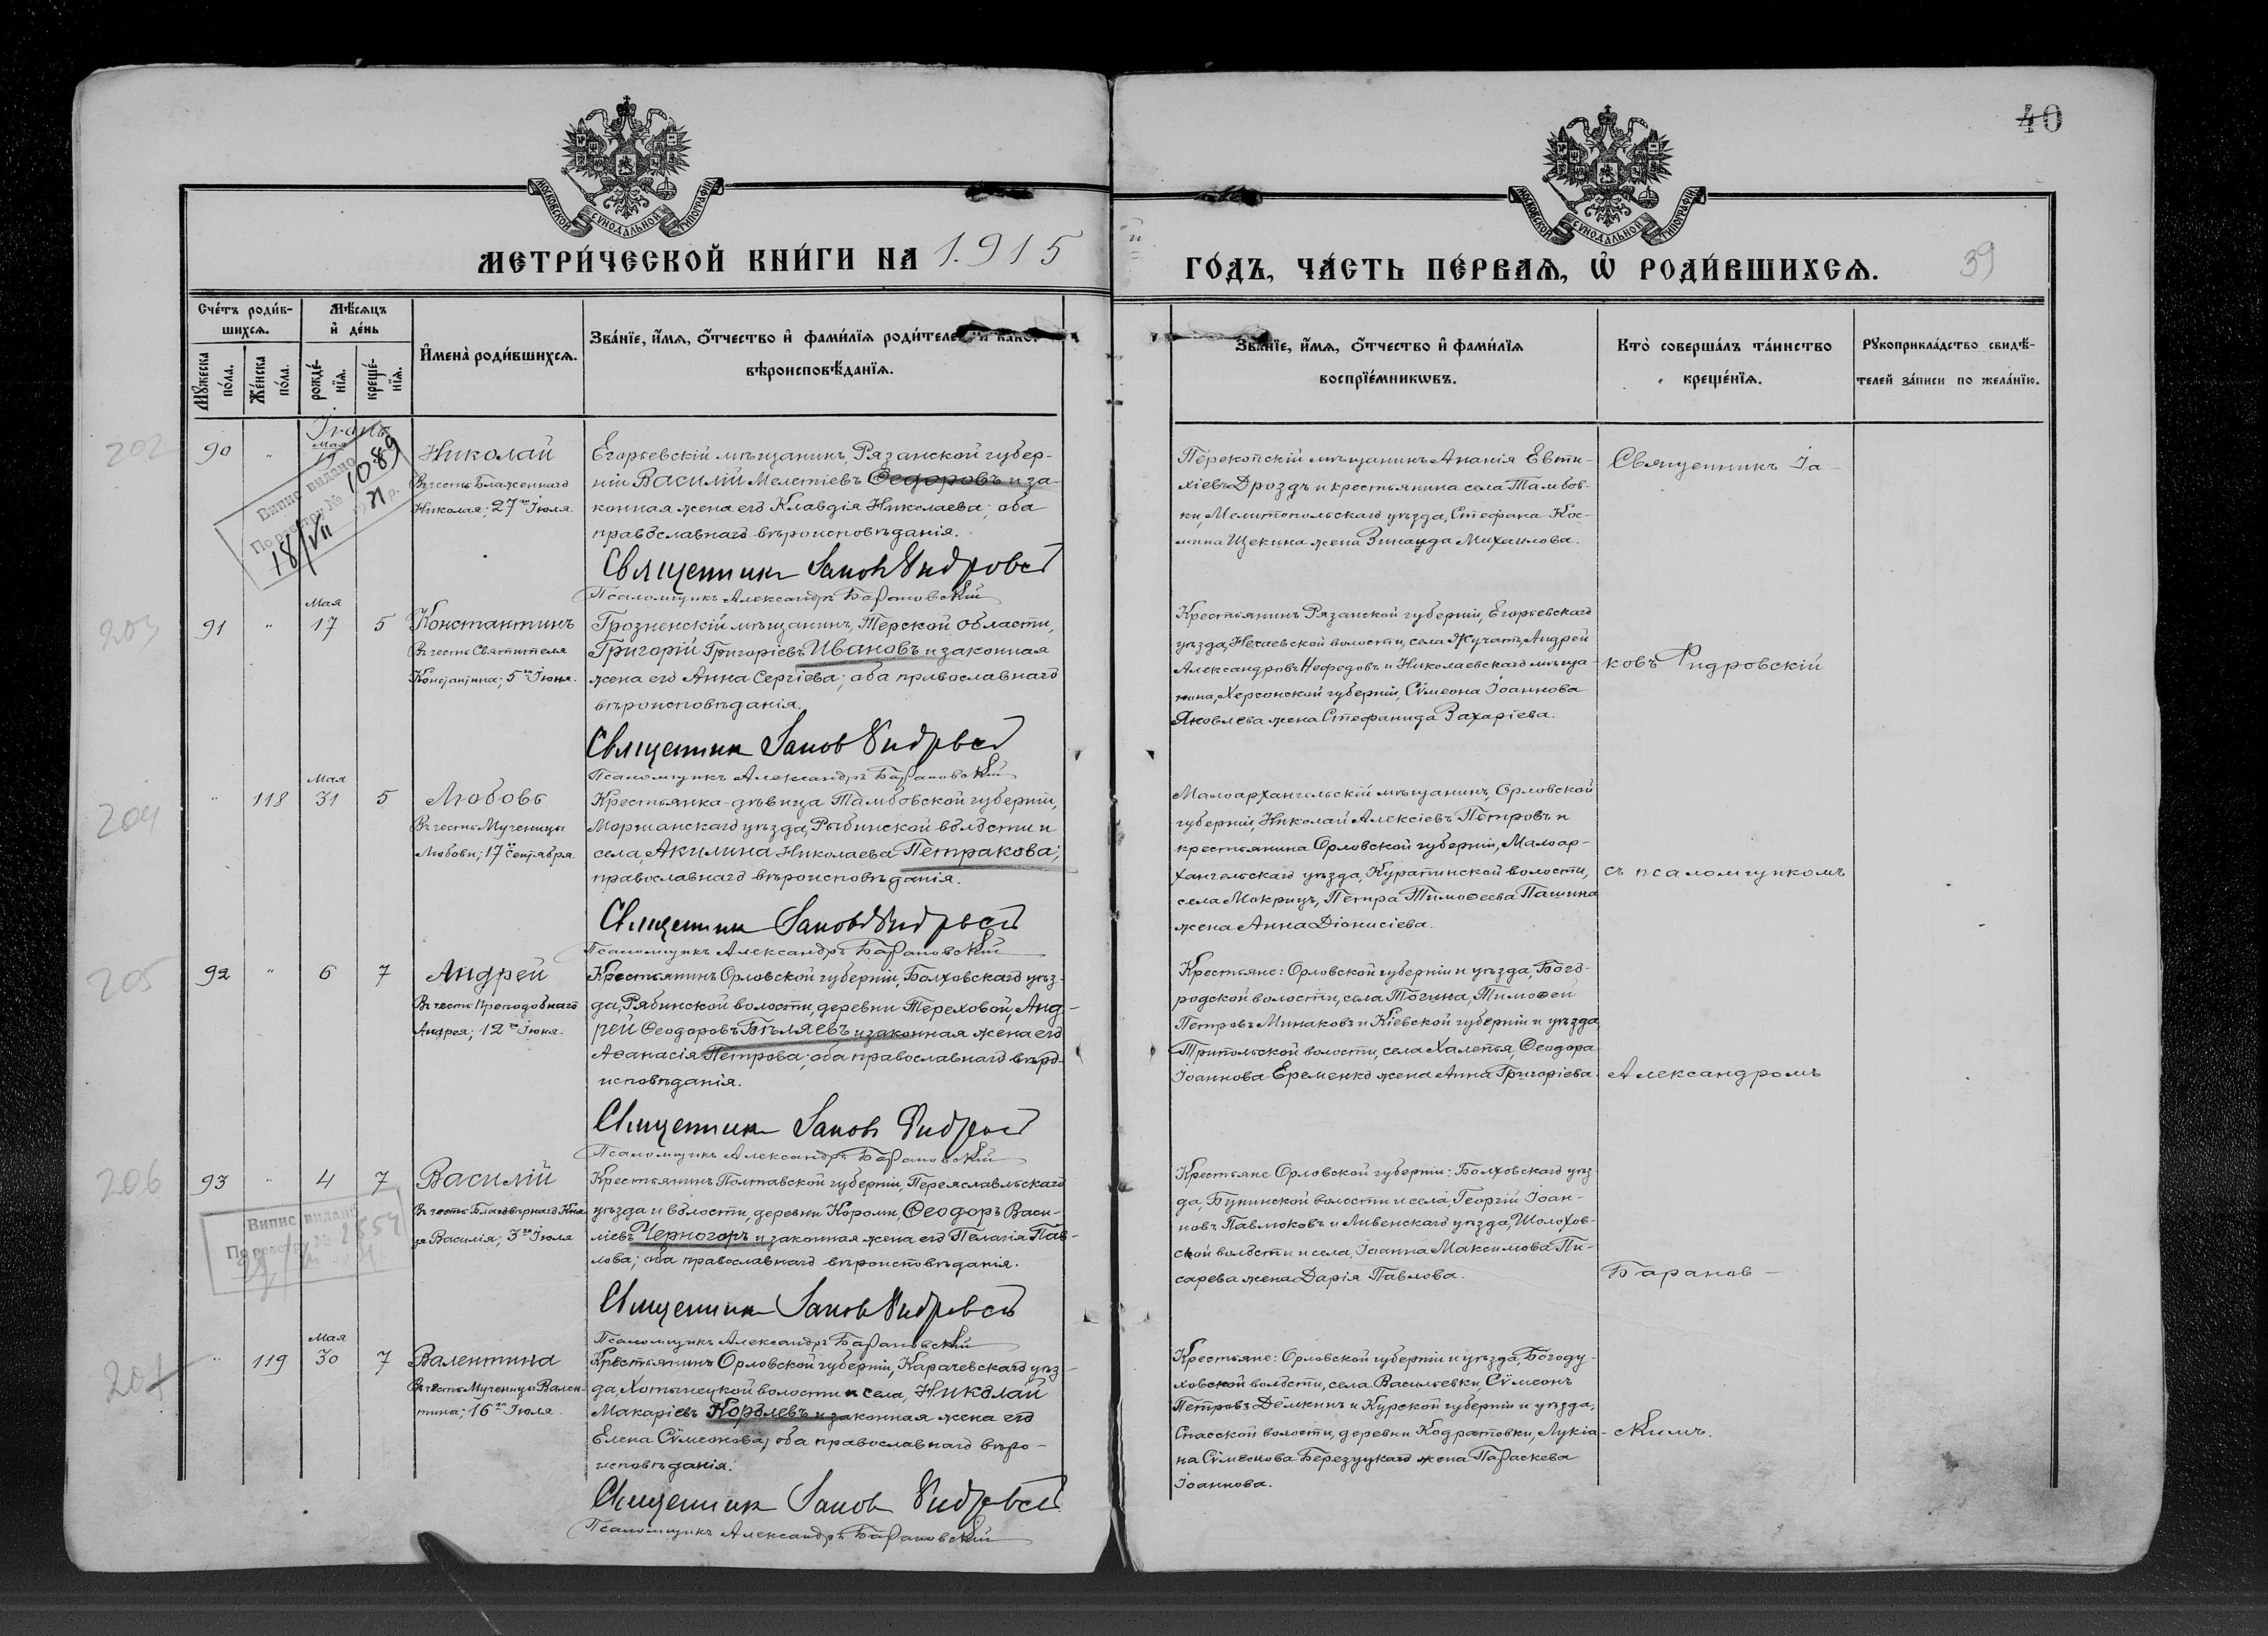 40
МОСКОВСКОЙ СѴНОДАЛЬНОЙ ТИПОГРАФІИ
МОСКОВСКОЙ СѴНОДАЛЬНОЙ ТИПОГРАФІИ
МЕТРИ́ЧЕСКОЙ КНИ́ГИ НА 1915
ГО́ДЪ, ЧА́СТЬ ПЕ́РВАѦ, Ѽ РОДИ́ВШИХСѦ.
39
Сче́тъ роди́в-
шихсѧ.
Мѣ́сѧцъ
и҆ де́нь
Мꙋ́жеска
по́ла.
Же́нска
по́ла.
рожде́-
нїѧ.
креще́-
нїѧ.
И҆мена̀ роди́вшихсѧ.
Зва́нїе, и҆́мѧ, ѻ҆́тчество и҆ фами́лїѧ роди́телей
вѣроисповѣ́данїѧ.
Зва́нїе, и҆́мѧ, ѻ҆́тчество и҆ фами́лїѧ
воспрїе́мникѡвъ.
Кто̀ соверша́лъ та́инство
креще́нїѧ.
Рꙋкоприкла́дство свидѣ́-
телей за́писи по жела́нїю.
202
90 "
Мая
19
Николай
Въ честь Блаженнаго
Николая; 27го Іюля.
Випис видано
По реєстру № 1089
18/VII 1931 р.
Егорьевскій мѣщанинъ, Рязанской губер-
ніи Василій Мелетіевъ Ѳедоровъ и за-
конная жена его Клавдія Николаева; оба
православнаго вѣроисповѣданія.
Священникъ Іаковъ Фидровскій
Псаломщикъ Александръ Барановскій
Перекопскій мѣщанинъ Ананія Евти-
хіевъ Дроздъ и крестьянина села Тамбов-
ки, Мелитопольскаго уѣзда, Стефана Кос-
мина Щекина жена Зинаида Михаилова.
Священникъ Іа-
203
91 "
Мая
17 5
Константинъ
Въ честь Святителя
Константина; 5го Іюня.
Грозненскій мѣщанинъ, Терской области,
Григорій Григоріевъ Ивановъ и законная
жена его Анна Сергіева; оба православнаго
вѣроисповѣданія.
Священникъ Іаковъ Фидровскій
Псаломщикъ Александръ Барановскій
Крестьянинъ Рязанской губерніи, Егорьевскаго
уѣзда, Нечаевской волости, села Жучатъ, Андрей
Александровъ Нефедовъ и Николаевскаго мѣща-
нина, Херсонской губерніи, Сѵмеона Іоаннова
Яковлева жена Стефанида Захаріева.
ковъ Фидровскій
204
" 118
Мая
31 5
Любовь
Въ честь Мученицы
Любови; 17го Сентября.
Крестьянка-дѣвица Тамбовской губерніи,
Моршанскаго уѣзда, Рыбинской волости и
села, Акилина Николаева Петракова;
православнаго вѣроисповѣданія.
Священникъ Іаковъ Фидровскій
Псаломщикъ Александръ Барановскій
Малоархангельскій мѣщанинъ, Орловской
губерніи, Николай Алексіевъ Петровъ и
крестьянина Орловской губерніи, Малоар-
хангельскаго уѣзда, Куракинской волости,
села Мокрицъ, Петра Тимоѳеева Пашина
жена Анна Діонисіева.
съ псаломщикомъ
205
92 "
6 7
Андрей
Въ честь Преподобнаго
Андрея; 12го Іюня.
Крестьянинъ Орловской губерніи, Болховскаго уѣз-
да, Рябинской волости, деревни Тереховой, Анд-
рей Ѳеодоровъ Бѣляевъ и законная жена его
Аѳанасія Петрова; оба православнаго вѣро-
исповѣданія.
Священникъ Іаковъ Фидровскій
Псаломщикъ Александръ Барановскій
Крестьяне: Орловской губерніи и уѣзда, Бого-
родской волости, села Тогина, Тимоѳей
Петровъ Минаковъ и Кіевской губерніи и уѣзда,
Трипольской волости, села Халепья, Ѳеодора
Іоаннова Еременко жена Анна Григоріева.
Александромъ
206
93 "
4 7
Василій
Въ честь Благовѣрнаго Кня-
зя Василія; 3го Іюля
Випис видано
По реєстру №
Крестьянинъ Полтавской губерніи, Переяславльскаго
уѣзда и волости, деревни Коромъ, Ѳеодоръ Васи-
ліевъ Черногоръ и законная жена его Пелагія Пав-
лова; оба православнаго вѣроисповѣданія.
Священникъ Іаковъ Фидровскій
Псаломщикъ Александръ Барановскій
Крестьяне Орловской губерніи: Болховскаго уѣз-
да, Бунинской волости и села, Георгій Іоан-
новъ Павлюковъ и Ливенскаго уѣзда, Шолохов-
ской волости и села, Іоанна Максимова Пи-
сарева жена Дарія Павлова.
Баранов-
207
" 119
Мая
30 7
Валентина
Въ честь Мученицы Вален-
тины; 16го Іюля.
Крестьянинъ Орловской губерніи, Карачевскаго уѣз-
да, Хотынецкой волости и села, Николай
Макаріевъ Королевъ и законная жена его
Елена Сѵмеонова; оба православнаго вѣро-
исповѣданія.
Священникъ Іаковъ Фидровскій
Псаломщикъ Александръ Барановскій
Крестьяне: Орловской губерніи и уѣзда, Богоду-
ховской волости, села Васильевки, Сѵмеонъ
Петровъ Дёмкинъ и Курской губерніи и уѣзда,
Спасской волости, деревни Кодратовки, Лукіа-
на Сѵмеонова Березуцкаго жена Параскева
Іоаннова.
скимъ.